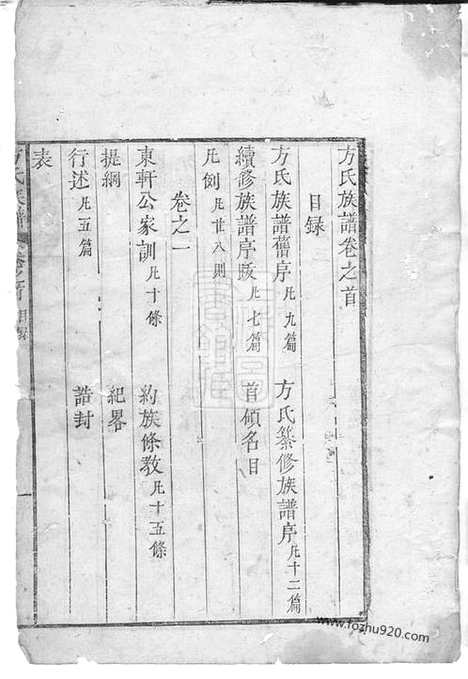 方氏族譜卷之首
目录
方氏族譜舊序凡九篇 方氏纂修族譜序凡十二篇
續修族譜序跋凡七篇 首傾名目
凡例凡廿八則
卷之一
東軒公家訓凡十條 約族條教凡十五條
提綱 紀畧
行述凡五篇 誥封
表
方氏族譜 卷之首 目录 一
www.fozhu920.com